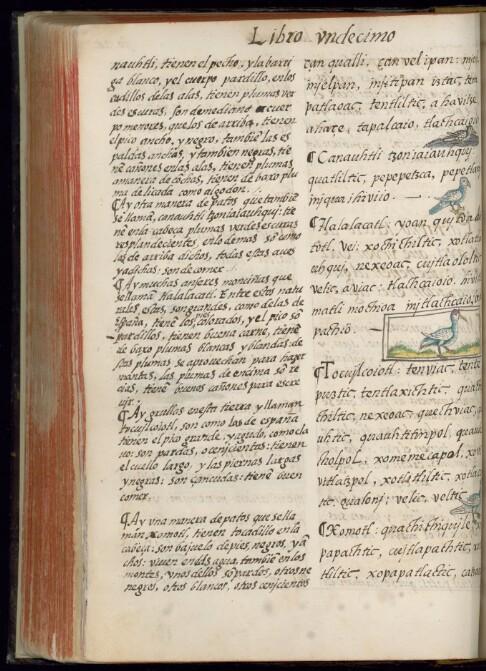 Libro vndecimo
nauhtli, tienen el pecho, y la barri
ga blanco, y el cuerpo pardillo, en los
cudillos delas alas, tienen plumas ver
des escuras, son de mediano cuer
po menores, que los de arriba, tienen
el pico ancho, y negro, tambiē las es
paldas anchas, y tambien negras, tie
nē cañones en las alas, tienen plumas
amanera de cochas, tienen de baxo plu
ma delicada como algodon.
¶Ay otra manera de patos que tambiē
se llamā, canauhtli tzoniaiauhquj: tie
nē en la cabeça plumas verdes escuras
resplandecientes, en lo demas sō como
los de arriba dichos, todas estas aues
ya dichas: son de comer.
¶Ay muchas anseres monciñas que
se llamā tlalalacatl. Entre estos natu
rales estas, son grandes, como delas de
españa, tienē los pies colorados, y el pico sō
pardillos, tienen buena carne, tienē
de baxo plumas blancas y blandas de
stas plumas se aprouechan para hazer
mantas, las plumas de encima sō re
cias, tienē buenos cañones para escre
uir.
¶Ay grullas enesta tierra y llaman
tocujlcoiotl, son como las de españa
tienen el pico grande, y agudo, como cla
uo: son pardas, o cenjcientas: tienen
el cuello largo, y las piernas largas
y negras: son çancudas: tienē buen
comer.
¶Ay vna manera de patos que se lla
mān xomotl, tienen tocadillo en la
cabeça: son bajuelo de pies, negros, y ā
chos: viuen enel agua, tambiē en los
montes, vnos dellos sō pardos, otros ne
negros, otros blancos, otros cenjcientos
çan qualli, çan vel ipan:
injelpan, injtipan iztac,
patlaoac, tentliltic,
tapalcaio, tlalhcaioio
¶Canauhtli tzoniaiauhquj
quatiltic, pepepetzca,
injqua ihiviio.
¶Tlalalacatl: yoan
totl. vei: xochichiltic,
uhquj, nexeoac,
velic, aviac: tlalhcaioio.
matli mochioa injtlalhcaio,
pachio.
¶Tocujlcoiotl: tenviac,
puztic: tentlaxichtic,
chiltic, nexeoac, quechviac,
uhtic, quauhtitinpol,
tlolpol, xomemecapol,
vitlatzpol, xotliltic,
tic, qualonj: velic, veltic
¶Xomotl: quachichiquile
papachtic, cujtlapachtic,
tliltic, xopapatlactic,